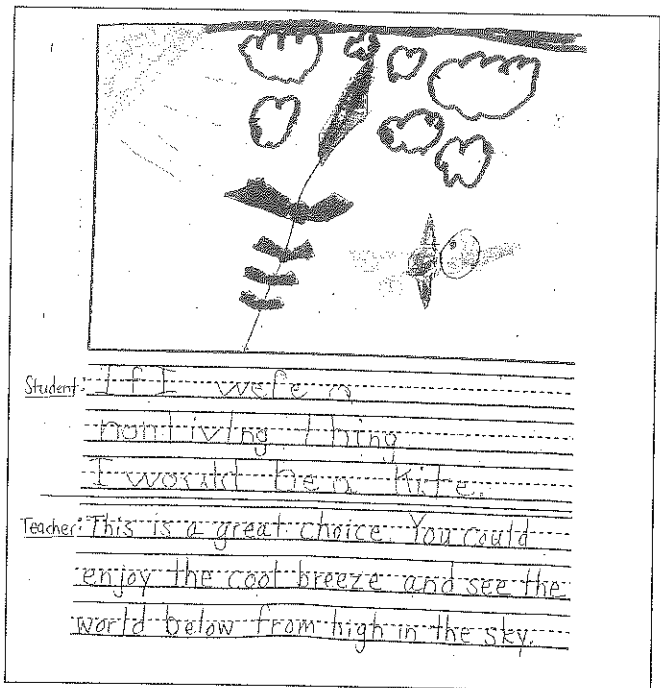 Student: If I were a
nonliving thing
I would be a kite.
Teacher: This is a great choice. You could
enjoy the cool breeze and see the
world below from high in the sky.